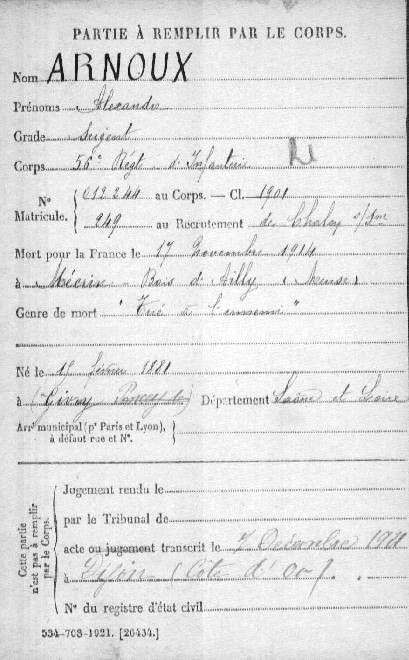 PARTIE À REMPLIR PAR LE CORPS.
Nom ARNOUX
Prénoms Alexandre
Grade Sergent
Corps 56e Régt d'Infanterie
Nº Matricule. 012244 au Corps. — Cl. 1901
249 au Recrutement de Chalon s/Sne
Mort pour la France le 17 novembre 1914
à Mécrin Bois d'Ailly (Meuse)
Genre de mort "Tué à l'ennemi"
Né le février 1881
à (Givry Département Saône et Loire
Arrt municipal (pr Paris et Lyon), à défaut rue et Nº.
Cette partie n'est pas à remplir par le Corps.
Jugement rendu le
par le Tribunal de
acte ou jugement transcrit le 7 Décembre
à Dijon (Côte d'Or)
Nº du registre d'état civil
534-708-1921. [26434.]